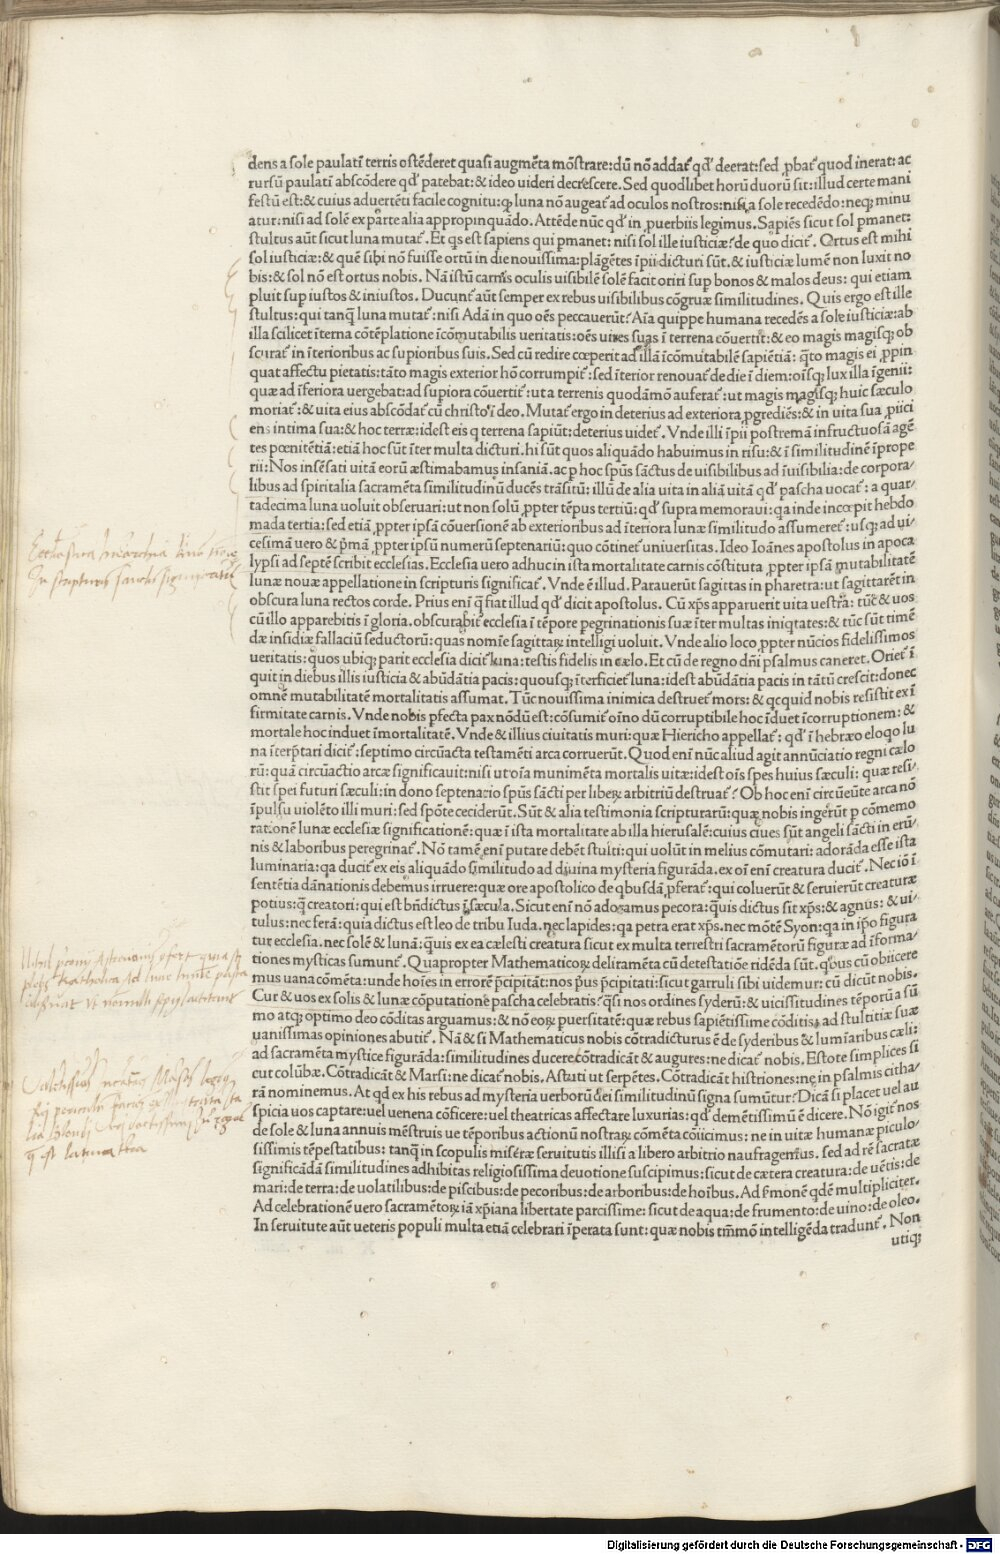 dens a sole paulatī terris ostēderet quasi augmēta mōstrare:dū nō addat̄ qd̓ deerat:sed ꝓbat̄ quod inerat: ac
rursū paulatī abscōdere qd̓ patebat:& ideo uideri decrescere. Sed quodlibet horū duorū sit:illud certe mani
festū est:& cuius aduertēti facile cognitu:ꝙ luna nō augeat̄ ad oculos nostros:nisi a sole recedēdo:neqꝫ minu
atur:nisi ad solē ex parte alia appropinquādo. Attēde nūc qd̓ in ꝓuerbiis legimus. Sapiēs sicut sol ꝑmanet:
stultus aūt sicut luna mutat̄. Et qs est sapiens qui ꝑmanet: nisi sol ille iusticiæ? de quo dicit̄. Ortus est mihi
sol iusticiæ:& quē sibi nō fuisse ortū in die nouissima:plāgētes īpii dicturi sūt.& iusticiæ lumē non luxit no
bis:& sol nō est ortus nobis. Nā istū carnis oculis uisibilē solē facit oriri suꝑ bonos & malos deus: qui etiam
pluit suꝑ iustos & iniustos. Ducunt̄ aūt semper ex rebus uisibilibus cōgruæ similitudines. Quis ergo est ille
stultus:qui tanqꝫ luna mutat̄:nisi Adā in quo oēs peccauerūt? Aīa quippe humana recedēs a sole iusticiæ:ab
illa scilicet īterna cōtēplatione īcōmutabilis ueritatis:oēs uires suas ī terrena cōuertit̄:& eo magis magisqꝫ ob
scurat̄ in īterioribus ac suꝑioribus suis. Sed cū redire cœperit ad illā īcōmutabilē sapiētiā: qto magis ei ꝓpin
quat affectu pietatis:tāto magis exterior hō corrumpit̄:sed īterior renouat̄ de die ī diem:oīsqꝫ lux illa īgenii:
quæ ad īferiora uergebat:ad suꝑiora cōuertit̄:ut a terrenis quodāmō auferat̄:ut magis magisqꝫ huic sæculo
moriat̄:& uita eius abscōdat̄ cū christo ī deo. Mutat̄ ergo in deterius ad exteriora ꝓgrediēs:& in uita sua ꝓiici
ens intima sua:& hoc terræ:idest eis q terrena sapiūt:deterius uidet̄. Vnde illi īpii postremā infructuosā agē
tes pœnitētiā:etiā hoc sūt īter multa dicturi.hi sūt quos aliquādo habuimus in risu:& ī similitudinē īprope
rii:Nos insēsati uitā eorū æstimabamus insaniā. ac ꝑ hoc spūs sāctus de uisibilibus ad īuisibilia:de corpora/
libus ad spiritalia sacramēta similitudinū ducēs trāsitū: illū de alia uita in aliā uitā qd̓ pascha uocat̄: a quar/
tadecima luna uoluit obseruari:ut non solū ꝓpter tēpus tertiū:qd̓ supra memoraui:qa inde incœpit hebdo
mada tertia:sed etiā ꝓpter ipsā cōuersionē ab exterioribus ad īteriora lunæ similitudo assumeret̄:usqꝫ ad ui/
cesimā uero & p̄mā ꝓpter ipsū numerū septenariū:quo cōtinet̄ uniuersitas. Ideo Ioānes apostolus in apoca
lypsi ad septē scribit ecclesias. Ecclesia uero adhuc in ista mortalitate carnis cōstituta ꝓpter ipsā mutabilitatē
lunæ nouæ appellatione in scripturis significat̄. Vnde ē illud. Parauerūt sagittas in pharetra:ut sagittarēt in
obscura luna rectos corde. Prius enī q̄ fiat illud qd̓ dicit apostolus. Cū xp̄s apparuerit uita uestra: tūc & uos
cū illo apparebitis ī gloria.obscurabit̄ ecclesia ī tēpore pegrinationis suæ īter multas iniqtates:& tūc sūt timē
dæ insidiæ fallaciū seductorū:quas nomīe sagittaꝝ intelligi uoluit. Vnde alio loco ꝓpter nūcios fidelissimos
ueritatis:quos ubiqꝫ parit ecclesia dicit̄ luna:testis fidelis in cælo. Et cū de regno dn̄i psalmus caneret. Oriet̄ ī
quit in diebus illis iusticia & abūdātia pacis:quousqꝫ īterficiet̄ luna:idest abūdātia pacis in tātū crescit:donec
omnē mutabilitatē mortalitatis assumat. Tūc nouissima inimica destruet̄ mors:& qcquid nobis resistit ex ī
firmitate carnis. Vnde nobis ꝑfecta pax nōdū est:cōsumit̄ oīno dū corruptibile hoc īduet īcorruptionem:&
mortale hoc induet īmortalitatē. Vnde & illius ciuitatis muri:quæ Hiericho appellat̄: qd̓ ī hebræo eloqo lu
na īterp̄tari dicit̄:septimo circūacta testamēti arca corruerūt. Quod enī nūc aliud agit annūciatio regni cælo
rū:quā circūactio arcæ significauit:nisi ut oīa munimēta mortalis uitæ:idest oīs spes huius sæculi: quæ resi/
stit spei futuri sæculi:in dono septenario spūs sācti per libeꝝ arbitriū destruat̄? Ob hoc enī circūeūte arca nō
īpulsu uiolēto illi muri:sed spōte ceciderūt. Sūt & alia testimonia scripturarū:quæ nobis ingerūt ꝑ cōmemo
rationē lunæ ecclesiæ significationē:quæ ī ista mortalitate ab illa hierusalē:cuius ciues sūt angeli sācti in erū/
nis & laboribus peregrinat̄. Nō tamē enī putare debēt stulti:qui uolūt in melius cōmutari: adorāda esse ista
luminaria:qa ducit̄ ex eis aliquādo similitudo ad diuina mysteria figurāda. ex oī enī creatura ducit̄. Nec iō ī
sentētia dānationis debemus irruere:quæ ore apostolico de qbusdā ꝓferat̄:qui coluerūt & seruierūt creaturæ
potius:q̄ creatori:qui est bn̄dictus ī sæcula. Sicut enī nō adoramus pecora:q̄uis dictus sit xp̄s:& agnus: & ui/
tulus:nec ferā: quia dictus est leo de tribu Iuda. nec lapides:qa petra erat xp̄s.nec mōtē Syon:qa in ip̄o figura
tur ecclesia. nec solē & lunā:quis ex ea cælesti creatura sicut ex multa terrestri sacramētorū figuræ ad īforma/
tiones mysticas sumunt̄. Quapropter Mathematicoꝝ deliramēta cū detestatiōe ridēda sūt. qbus cū obiicere
mus uana cōmēta:unde hoīes in errorē p̄cipitāt:nos p̄us p̄cipitati:sicut garruli sibi uidemur:cū dicūt nobis.
Cur & uos ex solis & lunæ cōputatione pascha celebratis? qsi nos ordines syderū:& uicissitudines tēporū a sū
mo atqꝫ optimo deo cōditas arguamus:& nō eoꝝ puersitatē:quæ rebus sapiētissime cōditis ad stultitiæ suæ
uanissimas opiniones abutit̄. Nā & si Mathematicus nobis cōtradicturus ē de syderibus & lumīaribus cæli:
ad sacramēta mystice figurāda:similitudines ducere:cōtradicāt & augures:ne dicat̄ nobis. Estote simplices si
cut colūbæ. Cōtradicāt & Marsi:ne dicat̄ nobis. Astuti ut serpētes. Cōtradicāt histriones:ne in psalmis citha/
rā nominemus. At qd̓ ex his rebus ad mysteria uerborū dei similitudinū signa sumūtur? Dicā si placet uel au
spicia uos captare:uel uenena cōficere:uel theatricas affectare luxurias:qd̓ demētissimū ē dicere. Nō īgit̄ nos
de sole & luna annuis mēstruis ue tēporibus actionū nostraꝝ cōmēta cōiicimus: ne in uitæ humanæ piculo/
sissimis tēpestatibus: tanqꝫ in scopulis miseræ seruitutis illisi a libero arbitrio naufragemus. sed ad rē sacratæ
significādā similitudines adhibitas religiosissima deuotione suscipimus:sicut de cætera creatura:de uētis:de
mari:de terra:de uolatilibus:de piscibus:de pecoribus:de arboribus:de hoībus. Ad ẜmonē qdē multipliciter.
Ad celebrationē uero sacramētoꝝ iā xp̄iana libertate parcissime: sicut de aqua:de frumento:de uino:de oleo.
In seruitute aūt ueteris populi multa etiā celebrari īperata sunt:quæ nobis tm̄mō intelligēda tradunt̄. Non
utiqꝫ
Digitalisierung gefördert durch die Deutsche Forschungsgemeinschaft - DFG